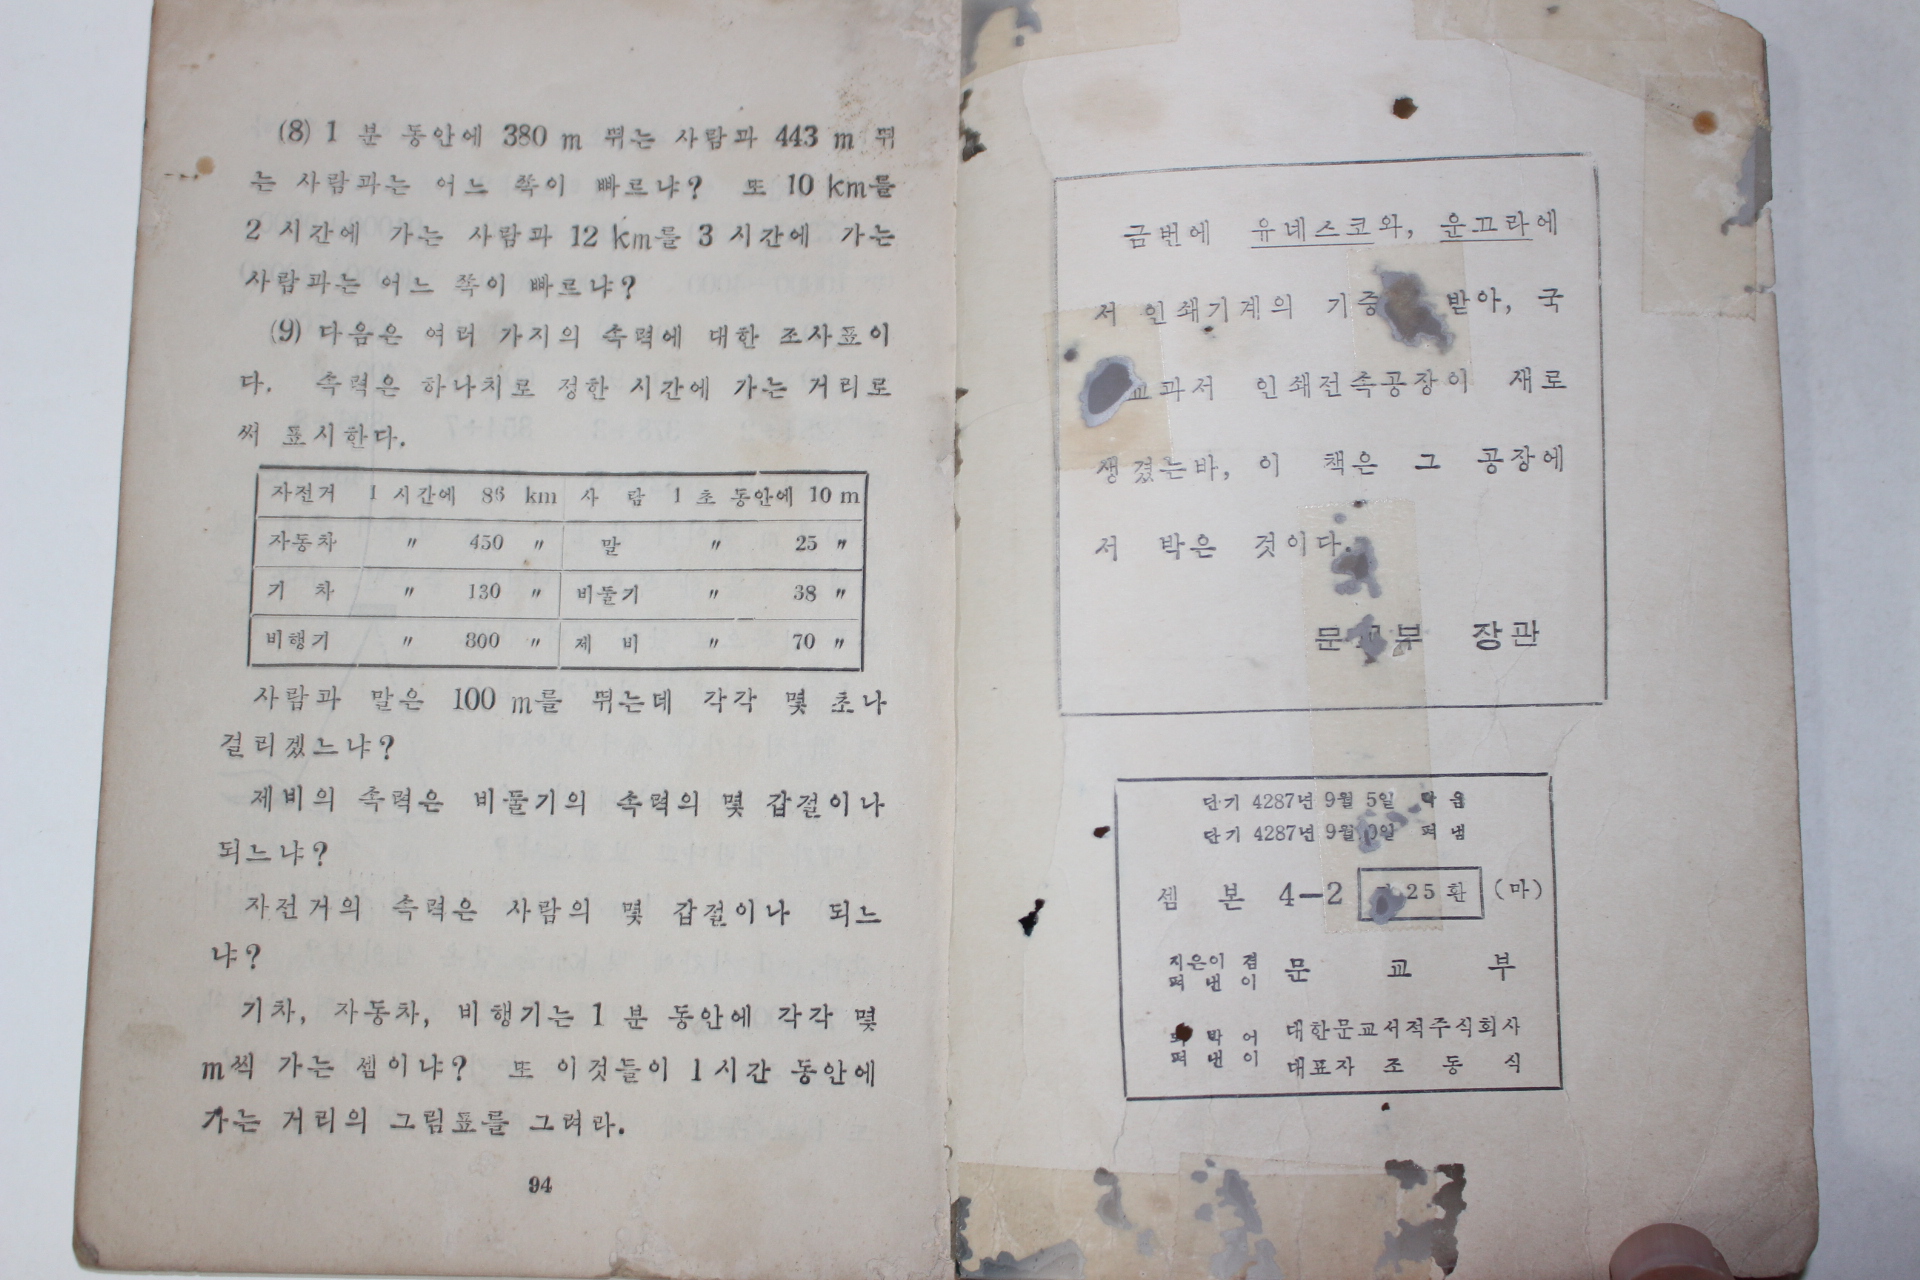 (8) 1 분 동안에 380 m 뛰는 사람과 443 m 뛰
는 사람과는 어느 쪽이 빠르냐? 또 10 km를
2 시간에 가는 사람과 12 km를 3 시간에 가는
사람과는 어느 쪽이 빠르냐?
(9) 다음은 여러 가지의 속력에 대한 조사표이
다. 속력은 하나치로 정한 시간에 가는 거리로
써 표시한다.
자전거 1 시간에 86 km 사 람 1 초 동안에 10 m
자동차 〃 450 〃 말 〃 25 〃
기 차 〃 130 〃 비둘기 〃 38 〃
비행기 〃 800 〃 제 비 〃 70 〃
사람과 말은 100 m를 뛰는데 각각 몇 초나
걸리겠느냐?
제비의 속력은 비둘기의 속력의 몇 갑절이나
되느냐?
자전거의 속력은 사람의 몇 갑절이나 되느
냐?
기차, 자동차, 비행기는 1 분 동안에 각각 몇
m씩 가는 셈이냐? 또 이것들이 1 시간 동안에
가는 거리의 그림표를 그려라.
94
금번에 유네스코와, 운끄라에
서 인쇄기계의 기증 받아, 국
교과서 인쇄전속공장이 새로
생겼는바, 이 책은 그 공장에
서 박은 것이다.
문교부 장관
단기 4287년 9월 5일 박음
단기 4287년 9월 펴냄
셈 본 4-2 25 환 (마)
지은이 겸
펴 낸 이 문 교 부
박 어
펴 낸 이 대한문교서적주식회사
대표자 조 동 식